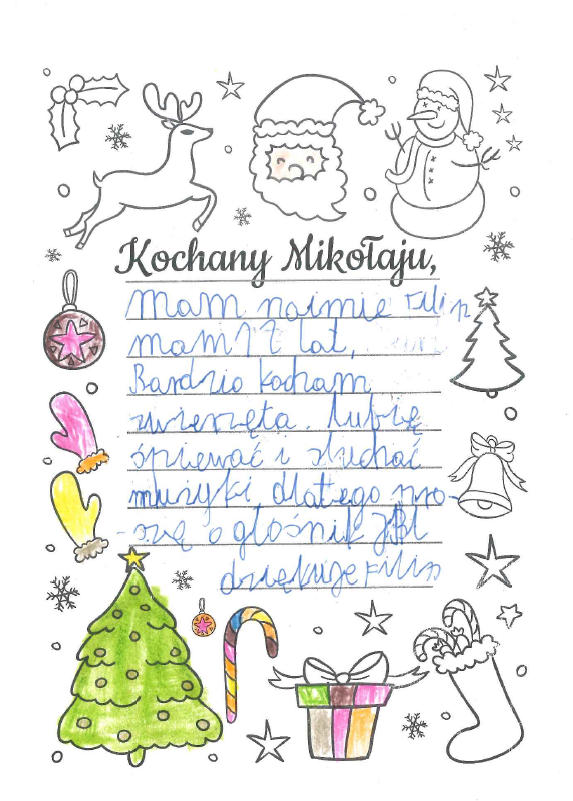 Kochany Mikołaju,
Mam naimie Filip
mam 17 lat,
Bardzo kocham
zwierzęta. Lubię
śpiewać i słuchać
muzyki, dlatego pro-
-szę o głośnik JBL
dziękuje Filip